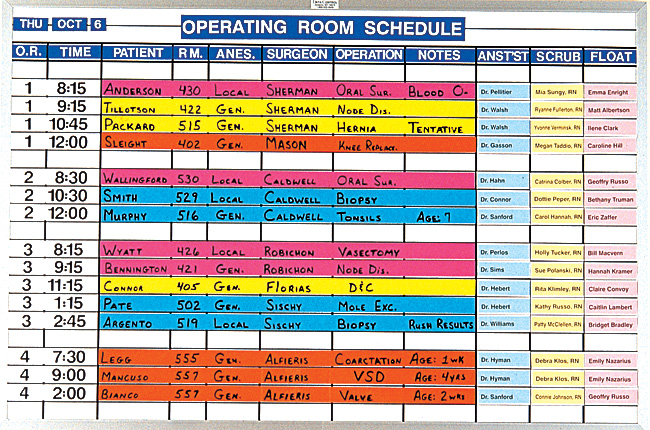 THU OCT 6 OPERATING ROOM SCHEDULE
O.R. TIME PATIENT RM. ANES. SURGEON OPERATION NOTES ANST'ST SCRUB FLOAT
1 8:15 ANDERSON 430 LOCAL SHERMAN ORAL SUR. BLOOD O- Dr. Pellitier Mia Sungy, RN Emma Enright
1 9:15 TILLOTSON 422 GEN. SHERMAN NODE DIS. Dr. Walsh Ryanne Fullerton, RN Matt Albertson
1 10:45 PACKARD 515 GEN. SHERMAN HERNIA TENTATIVE Dr. Walsh Yvonne Verminsk, RN Ilene Clark
1 12:00 SLEIGHT 402 GEN. MASON KNEE REPLACE. Dr. Gasson Megan Taddio, RN Caroline Hill
2 8:30 WALLINGFORD 530 LOCAL CALDWELL ORAL SUR. Dr. Hahn Catrina Colber, RN Geoffry Russo
2 10:30 SMITH 529 LOCAL CALDWELL BIOPSY Dr. Connor Dottie Peper, RN Bethany Truman
2 12:00 MURPHY 516 GEN. CALDWELL TONSILS AGE: 7 Dr. Sanford Carol Hannah, RN Eric Zaffer
3 8:15 WYATT 426 LOCAL ROBICHON VASECTOMY Dr. Perlos Holly Tucker, RN Bill Macvern
3 9:15 BENNINGTON 421 GEN. ROBICHON NODE DIS. Dr. Sims Sue Polanski, RN Hannah Kramer
3 11:15 CONNOR 405 GEN. FLORIAS D&C Dr. Hebert Rita Klimley, RN Claire Convoy
3 1:15 PATE 502 GEN. SISCHY MOLE EXC. Dr. Hebert Kathy Russo, RN Caitlin Lambert
3 2:45 ARGENTO 519 LOCAL SISCHY BIOPSY RUSH RESULTS Dr. Williams Patty McClellen, RN Bridget Bradley
4 7:30 LEGG 555 GEN. ALFIERIS COARCTATION AGE: 1 WK Dr. Hyman Debra Klos, RN Emily Nazarius
4 9:00 MANCUSO 557 GEN. ALFIERIS VSD AGE: 4 YRS Dr. Hyman Debra Klos, RN Emily Nazarius
4 2:00 BIANCO 557 GEN. ALFIERIS VALVE AGE: 2 WKS Dr. Sanford Connie Johnson, RN Geffory Russo